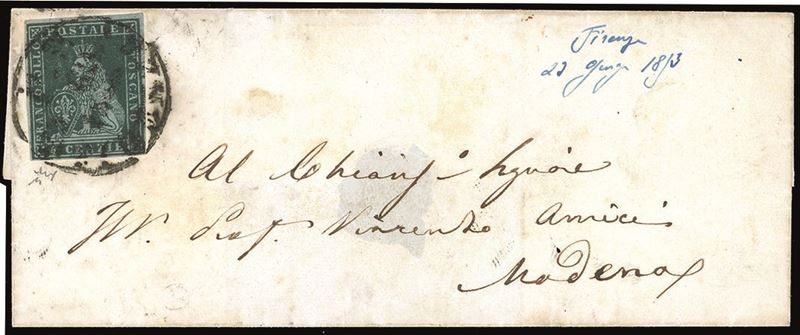 FRANCOBOLLO POSTALE TOSCANO
4 CRAZIE
Firenze
23 Giugn 1853
Al Chiar.o Signore
Prof. Vincenzo Amici
Modena